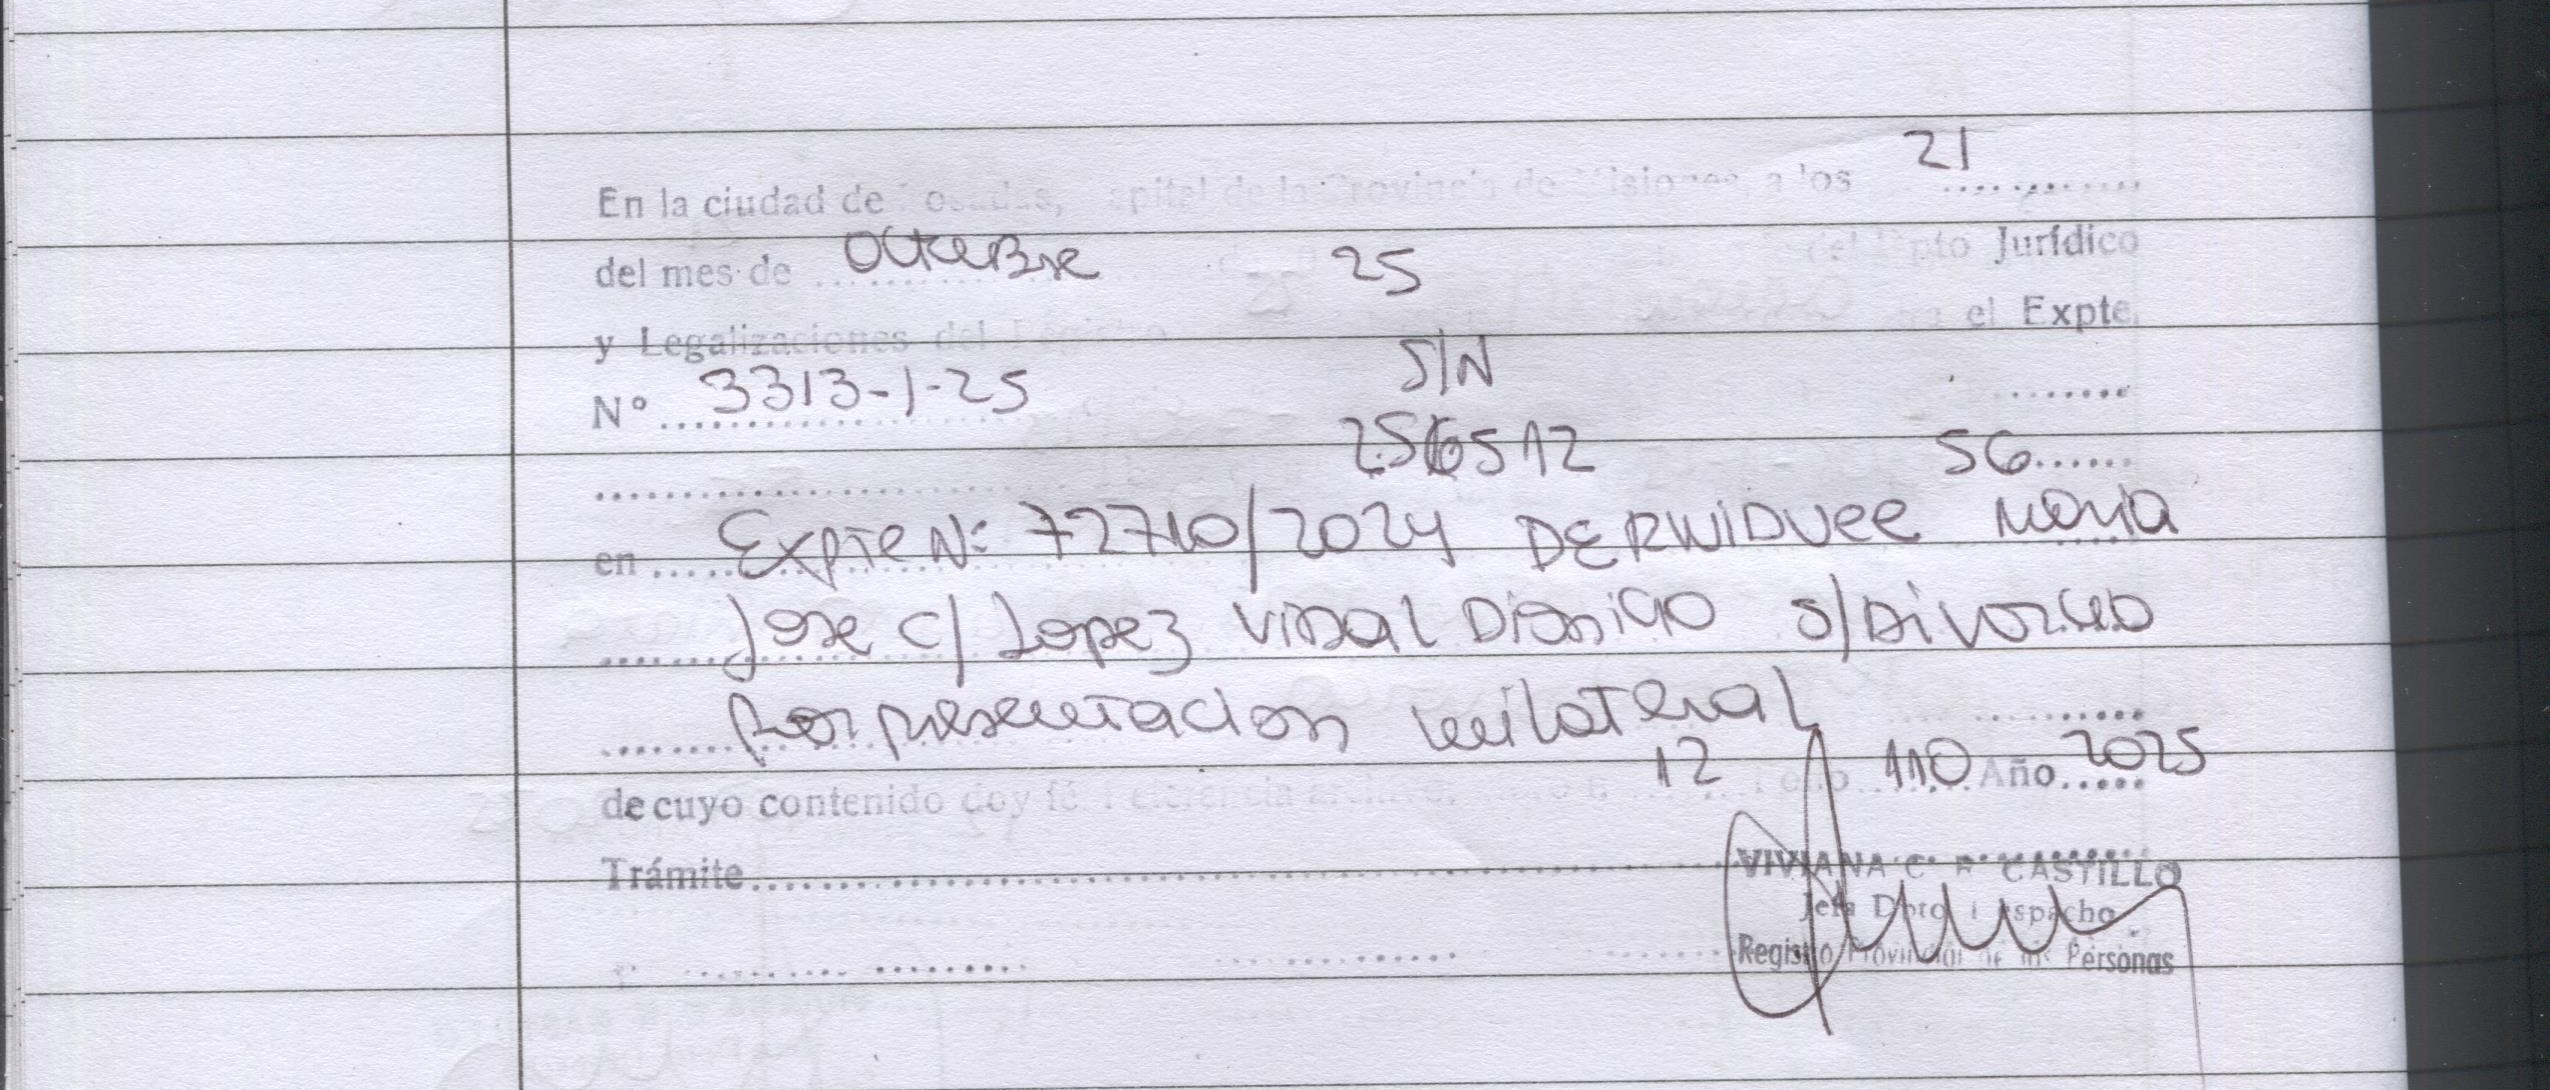 En la ciudad de Posadas, Capital de la Provincia de Misiones, a los 21 ............
del mes de Octubre 25 del Dpto Jurídico
y Legalizaciones del Registro el Expte.
Nº 3313-1-25 S/N .......
256512 56......
en Expte Nº 72710/2024 DERWIDUEE Maria
Jose c/ Lopez Vidal Dionicio s/ Divorcio
por presentacion unilateral
de cuyo contenido doy fé Referencia 12 110 Año 2025
Trámite
VIVIANA C. R. CASTILLO
Jefa Dpto Despacho
Registro Provincial de las Personas